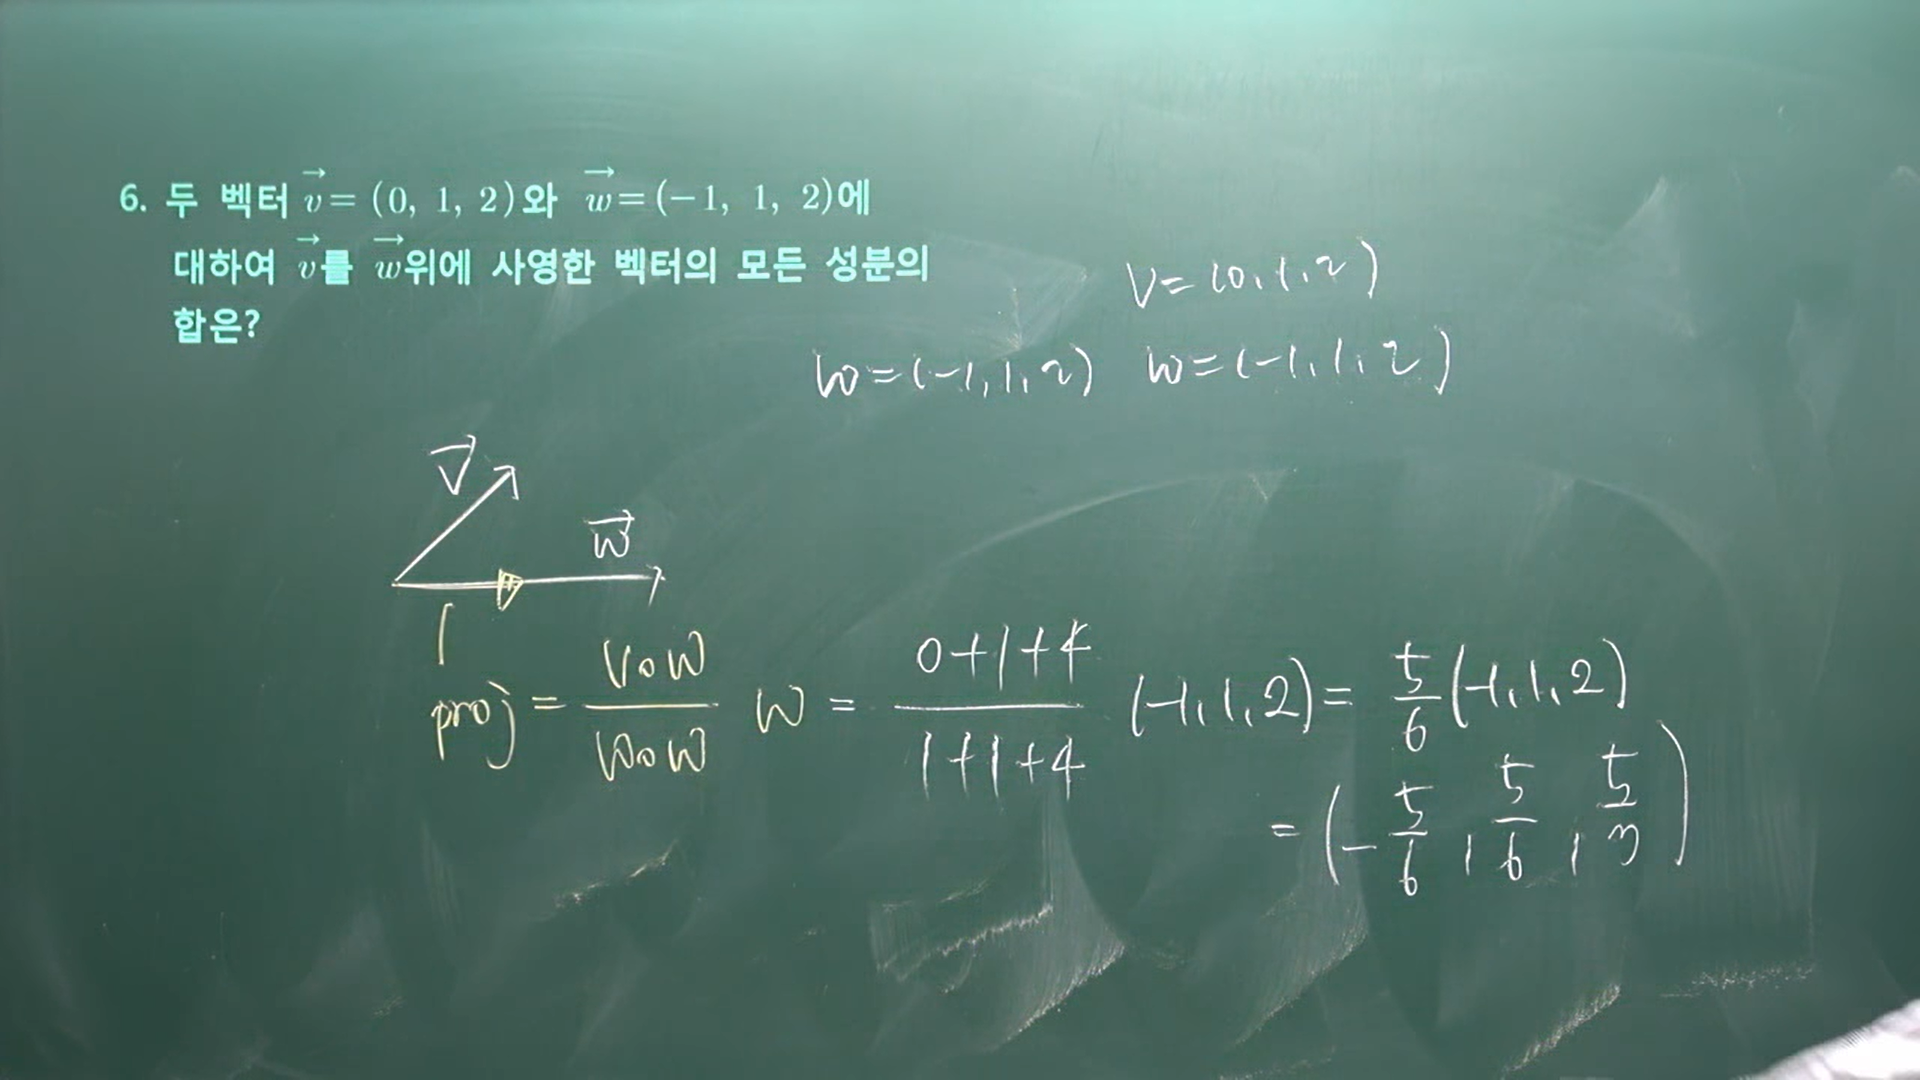 6. 두 벡터 v⃗ = (0, 1, 2)와 w⃗ = (−1, 1, 2)에
대하여 v⃗를 w⃗위에 사영한 벡터의 모든 성분의
합은?
V = (0, 1, 2)
W = (-1, 1, 2) W = (-1, 1, 2)
V⃗
W⃗
proj = V∘W / W∘W W = 0+1+4 / 1+1+4 (-1, 1, 2) = 5/6 (-1, 1, 2)
= (-5/6, 5/6, 5/3)